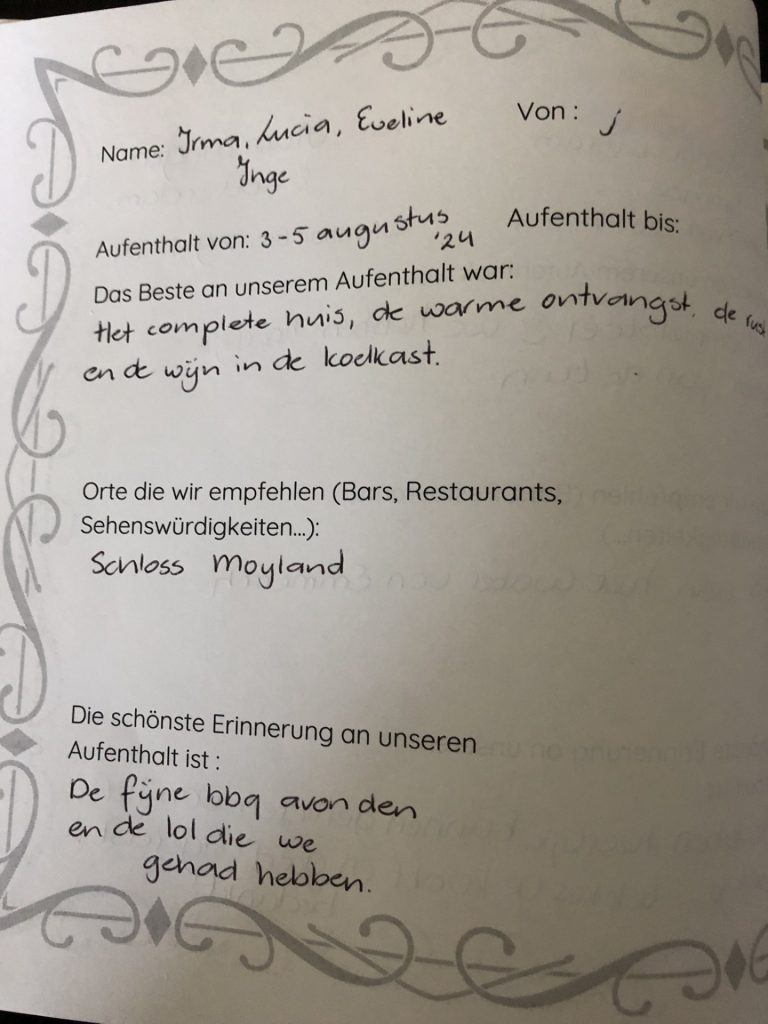 Name: Irma, Lucia, Eveline Von: j
Inge
Aufenthalt von: 3-5 augustus '24 Aufenthalt bis:
Das Beste an unserem Aufenthalt war:
Het complete huis, de warme ontvangst, de rust
en de wijn in de koelkast.
Orte die wir empfehlen (Bars, Restaurants,
Sehenswürdigkeiten...):
Schloss Moyland
Die schönste Erinnerung an unseren
Aufenthalt ist :
De fijne bbq avonden
en de lol die we
gehad hebben.